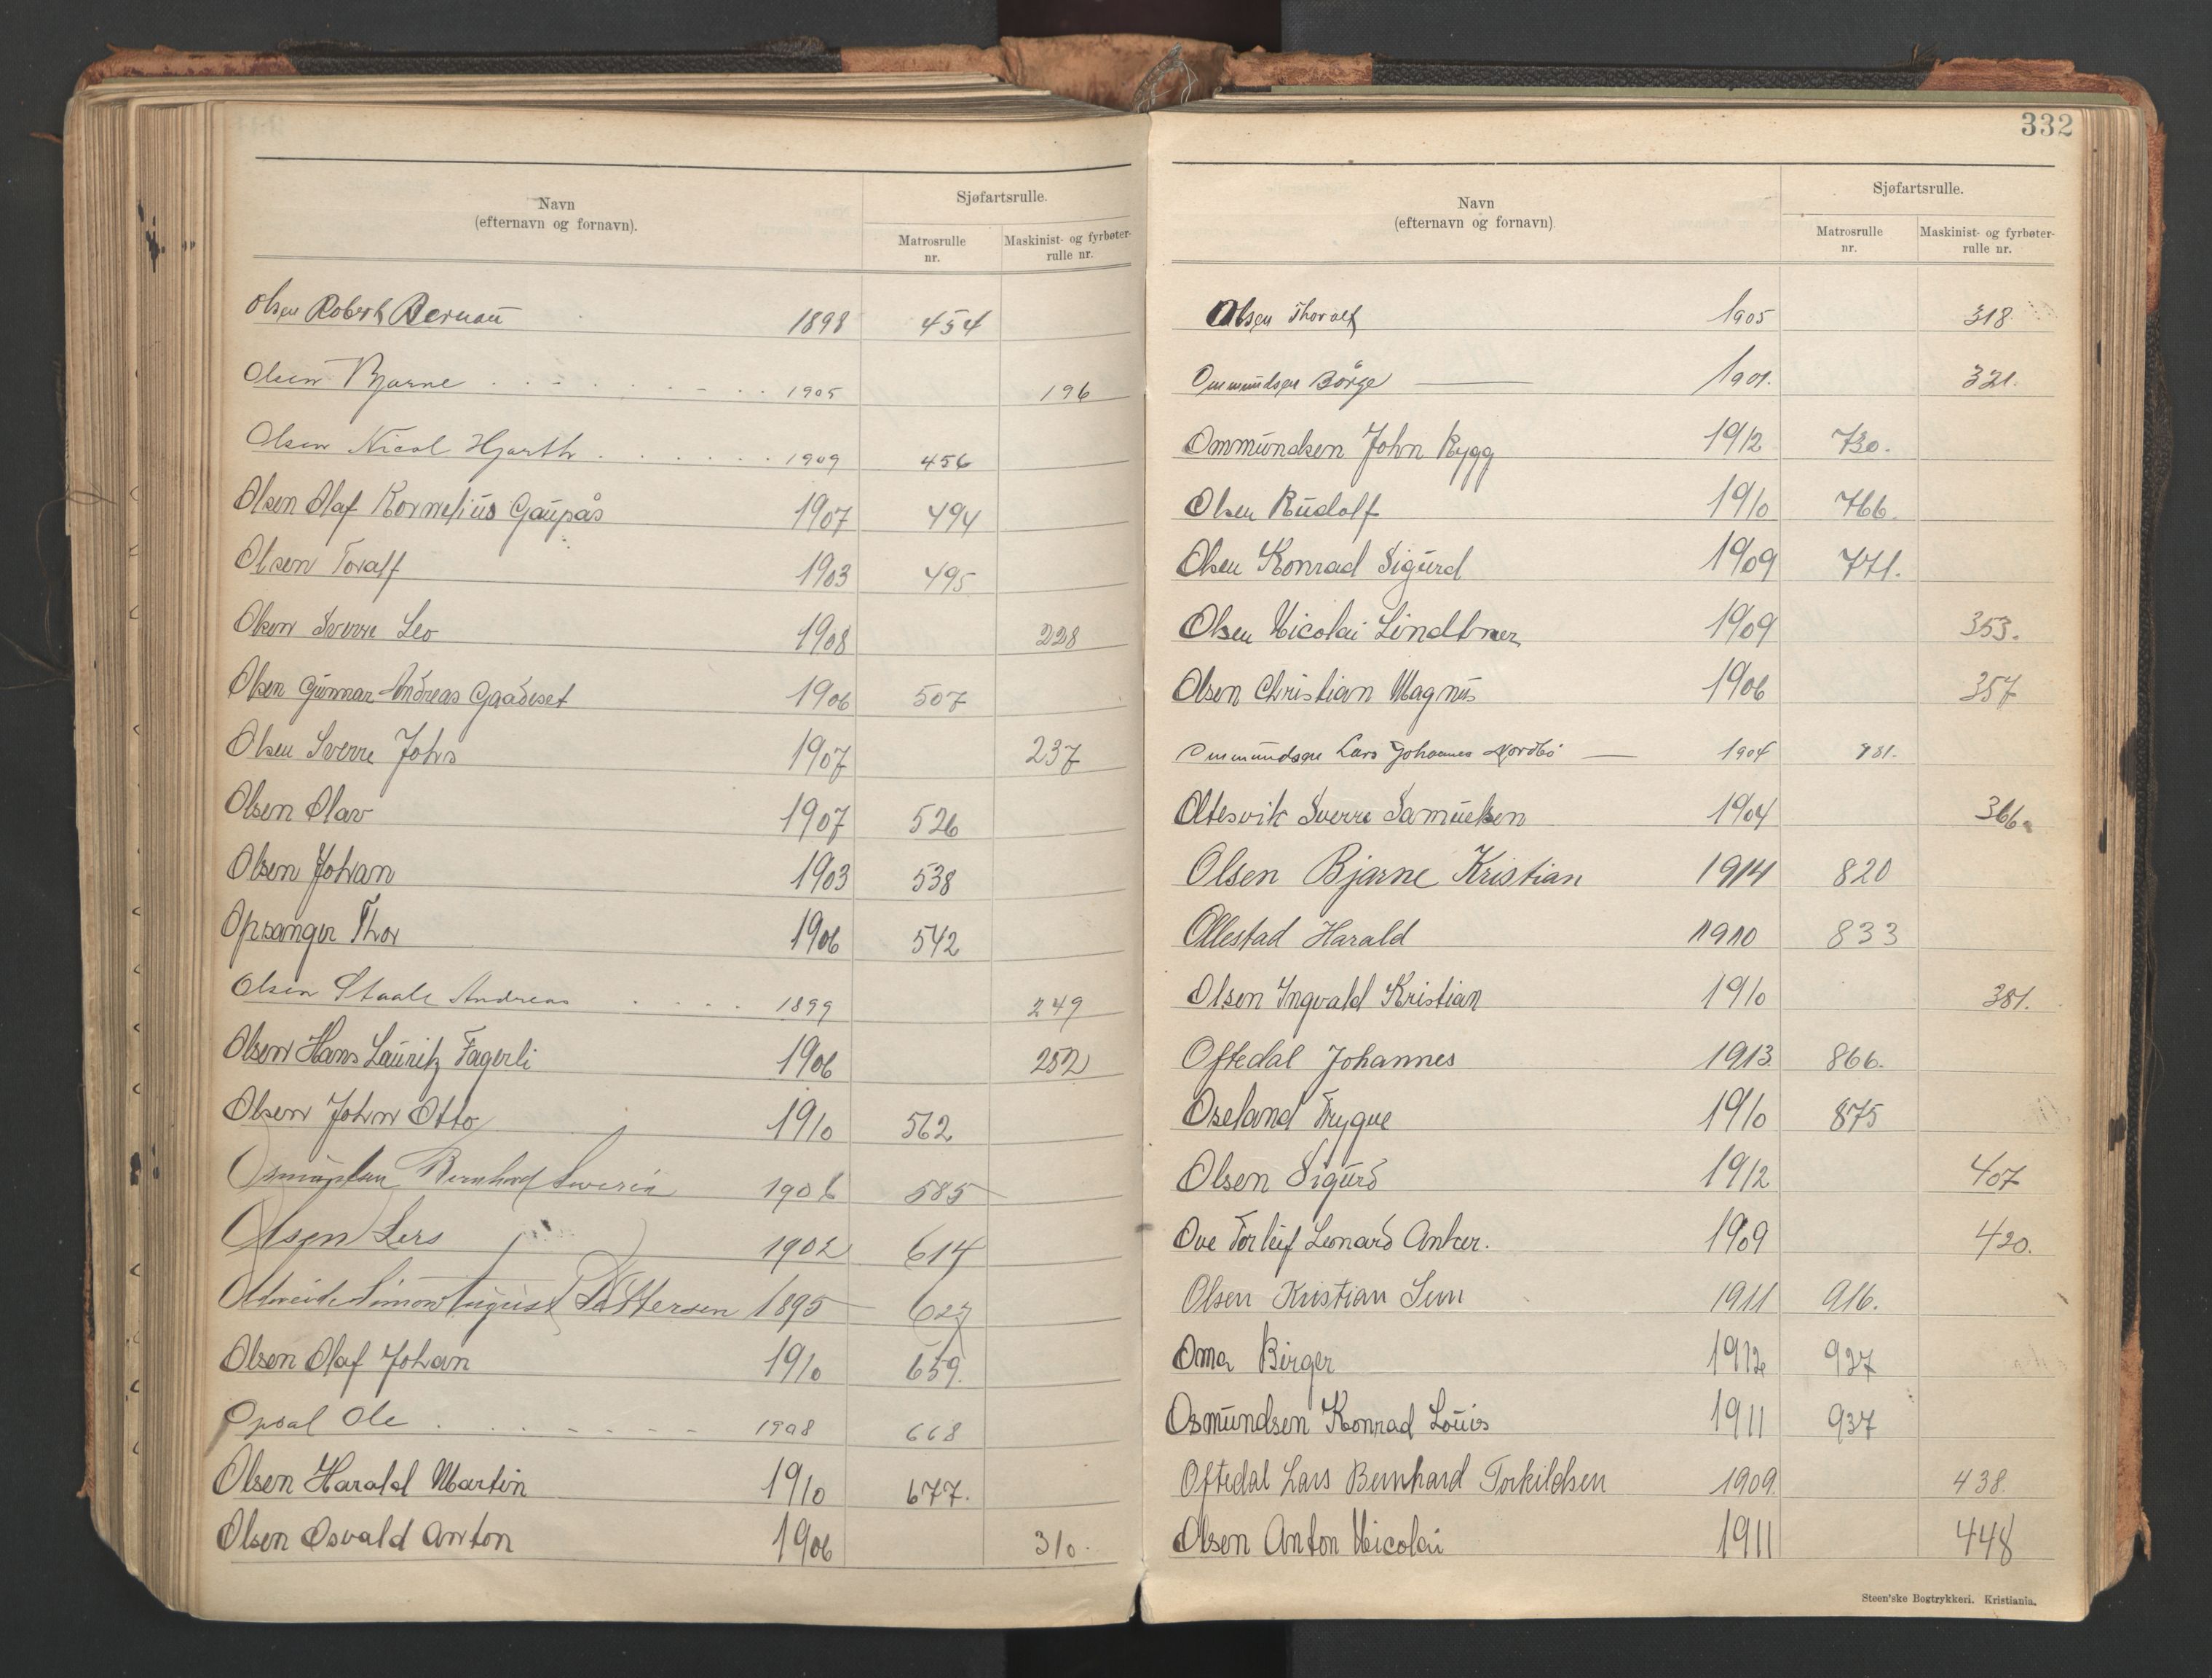 Navn
(efternavn og fornavn).
Sjøfartsrulle.
Matrosrulle nr.
Maskinist- og fyrbøter-rulle nr.
Olsen Robert Bernau 1898 454
Olsen Bjarne 1905 196
Olsen Nicol Hjorth 1909 456
Olsen Olaf Kornelius Gaupås 1907 494
Olsen Toralf 1903 495
Olsen Sverre Leo 1908 228
Olsen Gunnar Andreas Gaadeset 1906 507
Olsen Sverre Johs 1907 237
Olsen Olav 1907 526
Olsen Johan 1903 538
Opsanger Thor 1906 542
Olsen Staale Andreas 1899 249
Olsen Hans Lauritz Fagerli 1906 252
Olsen John Otto 1910 562
Bernhard 1906 585
Olsen Lers 1902 614
Simon August 1895
Olsen Olaf Johan 1910 659.
Opsal Ole 1908 668
Olsen Harald Martin 1910 677.
Olsen Osvald Anton 1906 310.
332
Navn
(efternavn og fornavn)
Sjøfartsrulle.
Matrosrulle nr.
Maskinist- og fyrbøter-rulle nr.
Olsen Thoralf 1905 318
Ommundsen Börge 1901. 321.
Ommundsen John Rygg 1912 730.
Olsen Rudolf 1910 766.
Olsen Konrad Sigurd 1909 771.
Olsen Nicolai 1909 353.
Olsen Christian Magnus 1906 357
Ommundsen Lars Johannes Nordbö 1904 781.
Oltesvik Sverre Samuelsen 1904 366.
Olsen Bjarne Kristian 1914 820
Ollestad Harald 1910 833
Olsen Ingvald Kristian 1910 381.
Oftedal Johannes 1913 866.
Oseland Trygve 1910 875
Olsen Sigurd 1912 407
Ove Torleif Leonard Anker. 1909 420.
Olsen Kristian 1911 916.
Oma Birger 1912 927
Osmundsen Konrad Louis 1911 937
Oftedal Lars Bernhard Torkildsen 1909. 438.
Olsen Anton Nicolai 1911 448
Steen'ske Bogtrykkeri. Kristiania.